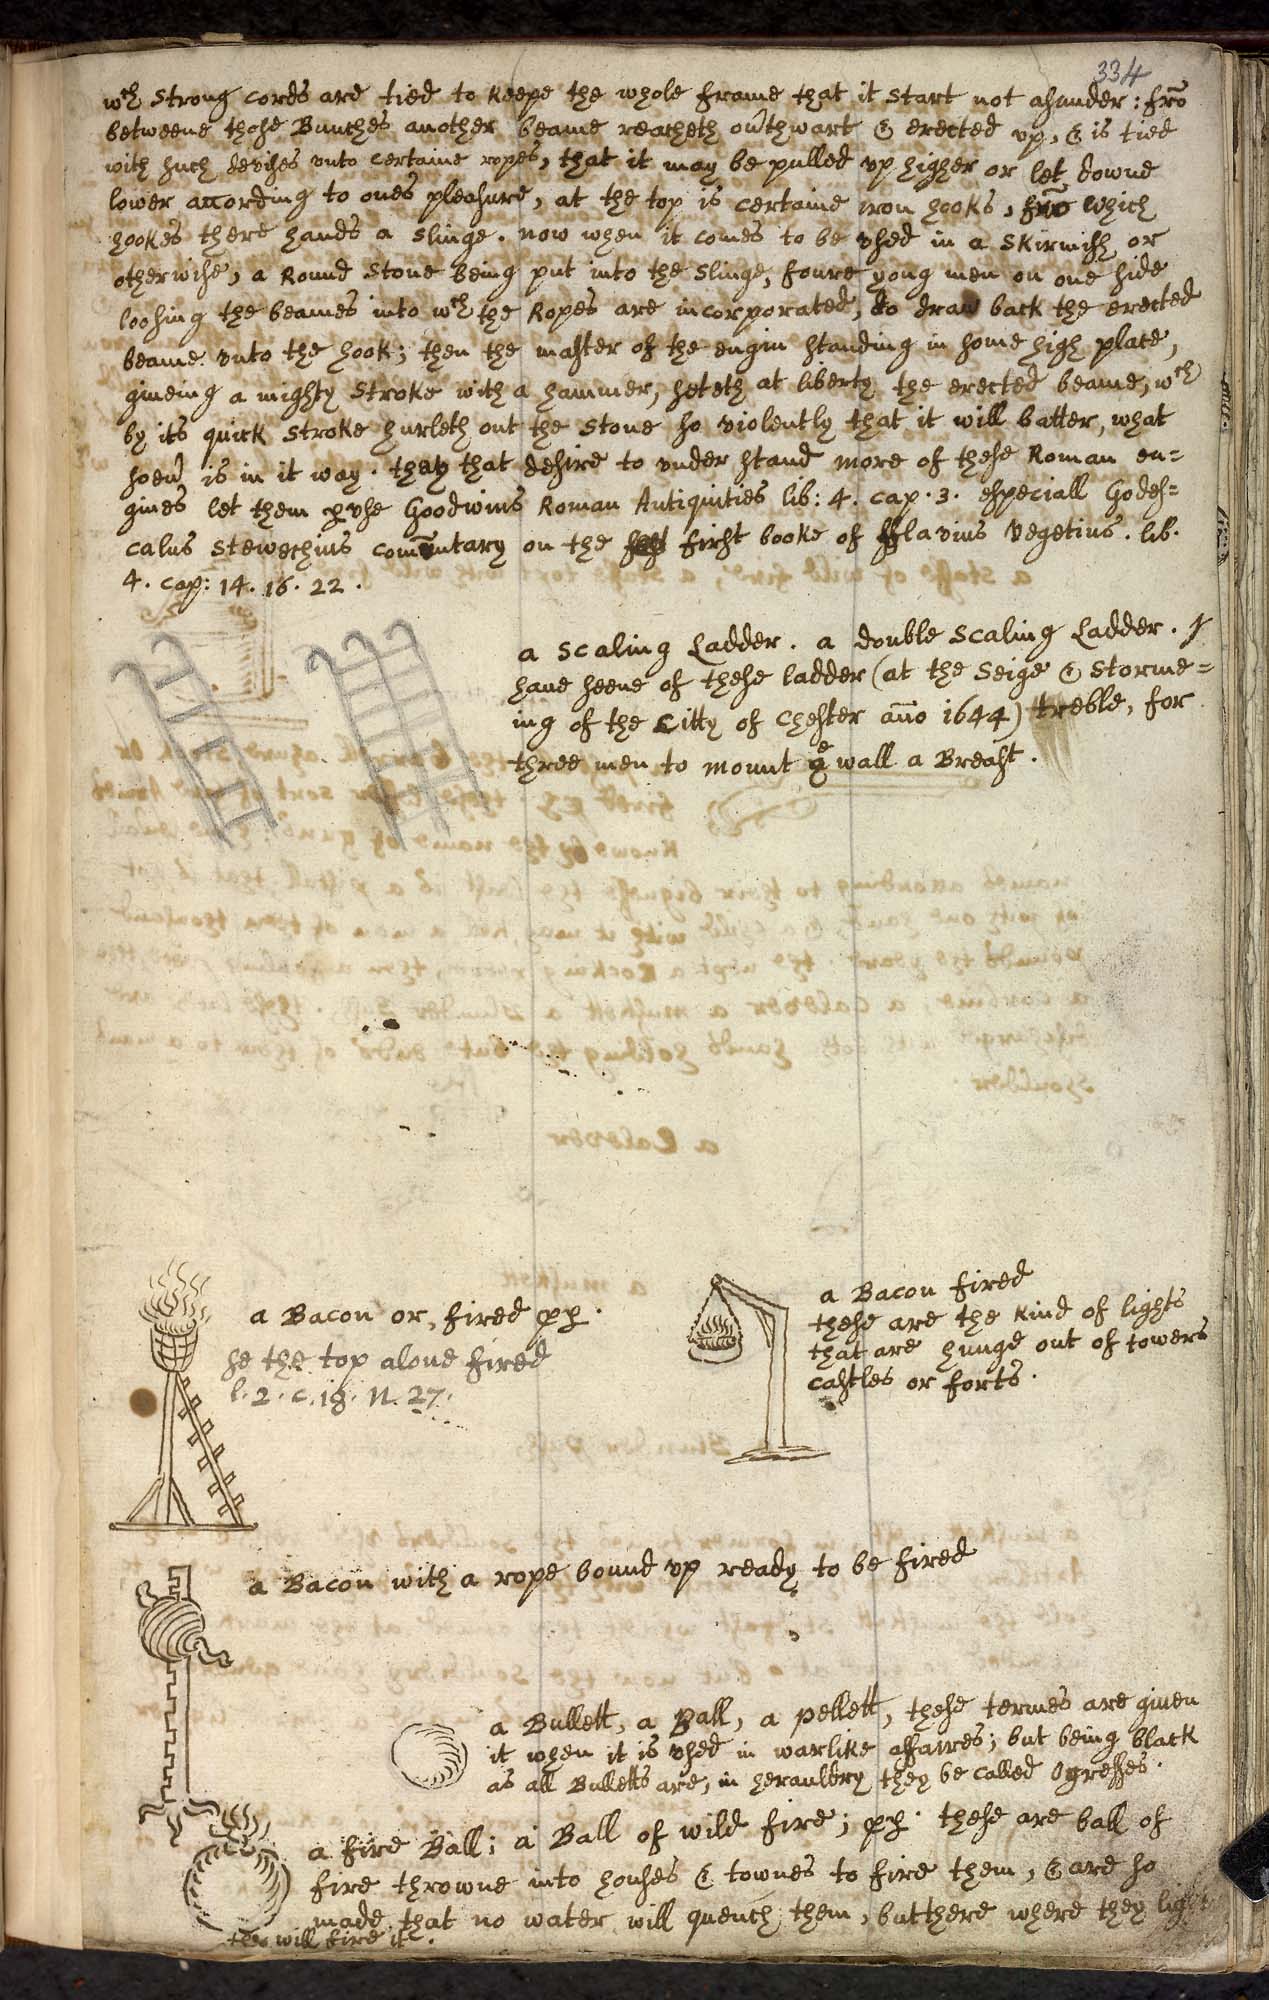 334
wch strong cords are tied to keepe the whole frame that it start not asunder: frō
betweene those Bunches another beame reacheth outhwart & erected vp, & is tied
with such devises vnto certaine ropes, that it may be pulled vp higher or let downe
lower according to ones pleasure, at the top is certaine iron hooks, frō which
hookes there hands a slinge. now when it comes to be vsed in a skirmish or
otherwise, a Round stone being put into the slinge, foure yong men on one side
loosing the beames into wch the Ropes are incorporated, do draw back the erected
beame vnto the hook; then the master of the engin standing in some high place,
giueing a mighty stroke with a hammer, seteth at liberty the erected beame, wch
by its quick stroke hurleth out the stone so violently that it will batter, what
soeur is in it way. they that desire to vnder stand more of these Roman en=
gines let them pvse Goodwins Roman Antiquities lib: 4. cap. 3. especiall Godes=
calus Stewechius comētary on the first booke of fflavius Vegetius. lib.
4. cap: 14. 16. 22.
a scaling Ladder. a double scaling Ladder. I
haue seene of these ladder (at the seige & storme=
ing of the Citty of Chester año 1644) treble, for
three men to mount ye wall a Breast.
a Bacon or, fired pp.
se the top alone fired
l. 2. c. 18. N. 27.
a Bacon fired
these are the kind of lights
that are hunge out of towers
castles or forts.
a Bacon with a rope bound vp ready to be fired
a Bullett, a Ball, a pellett, these termes are giuen
it when it is vsed in warlike affaires; but being black
as all Bulletts are, in herauldry they be called Ogresses.
a fire Ball; a Ball of wild fire; pp. these are ball of
fire throwne into houses & townes to fire them, & are so
made that no water will quench them, but there where they light
they will fire it.